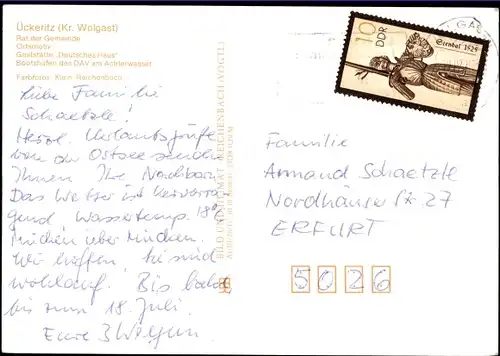 Ückeritz (Kr. Wolgast)
Rat der Gemeinde
Ortsmotiv
Gaststätte „Deutsches Haus"
Bootshafen des DAV am Achterwasser
Farbfotos: Klein, Reichenbach
Liebe Familie
Schaetzle!
Herzl. Urlaubsgrüße
von der Ostsee senden
Ihnen Ihre Nachbarn
Das Wetter ist hervorra-
gend, Wassertemp. 18°
Mücken über Mücken.
Wir hoffen, Sie sind
wohlauf. Bis bald
bis zum 18. Juli.
Eure 3
BILD UND HEIMAT REICHENBACH (VOGTL)
10
DDR
Stendal 1525
Familie
Armand Schaetzle
Nordhäuser Str 27
ERFURT
5026